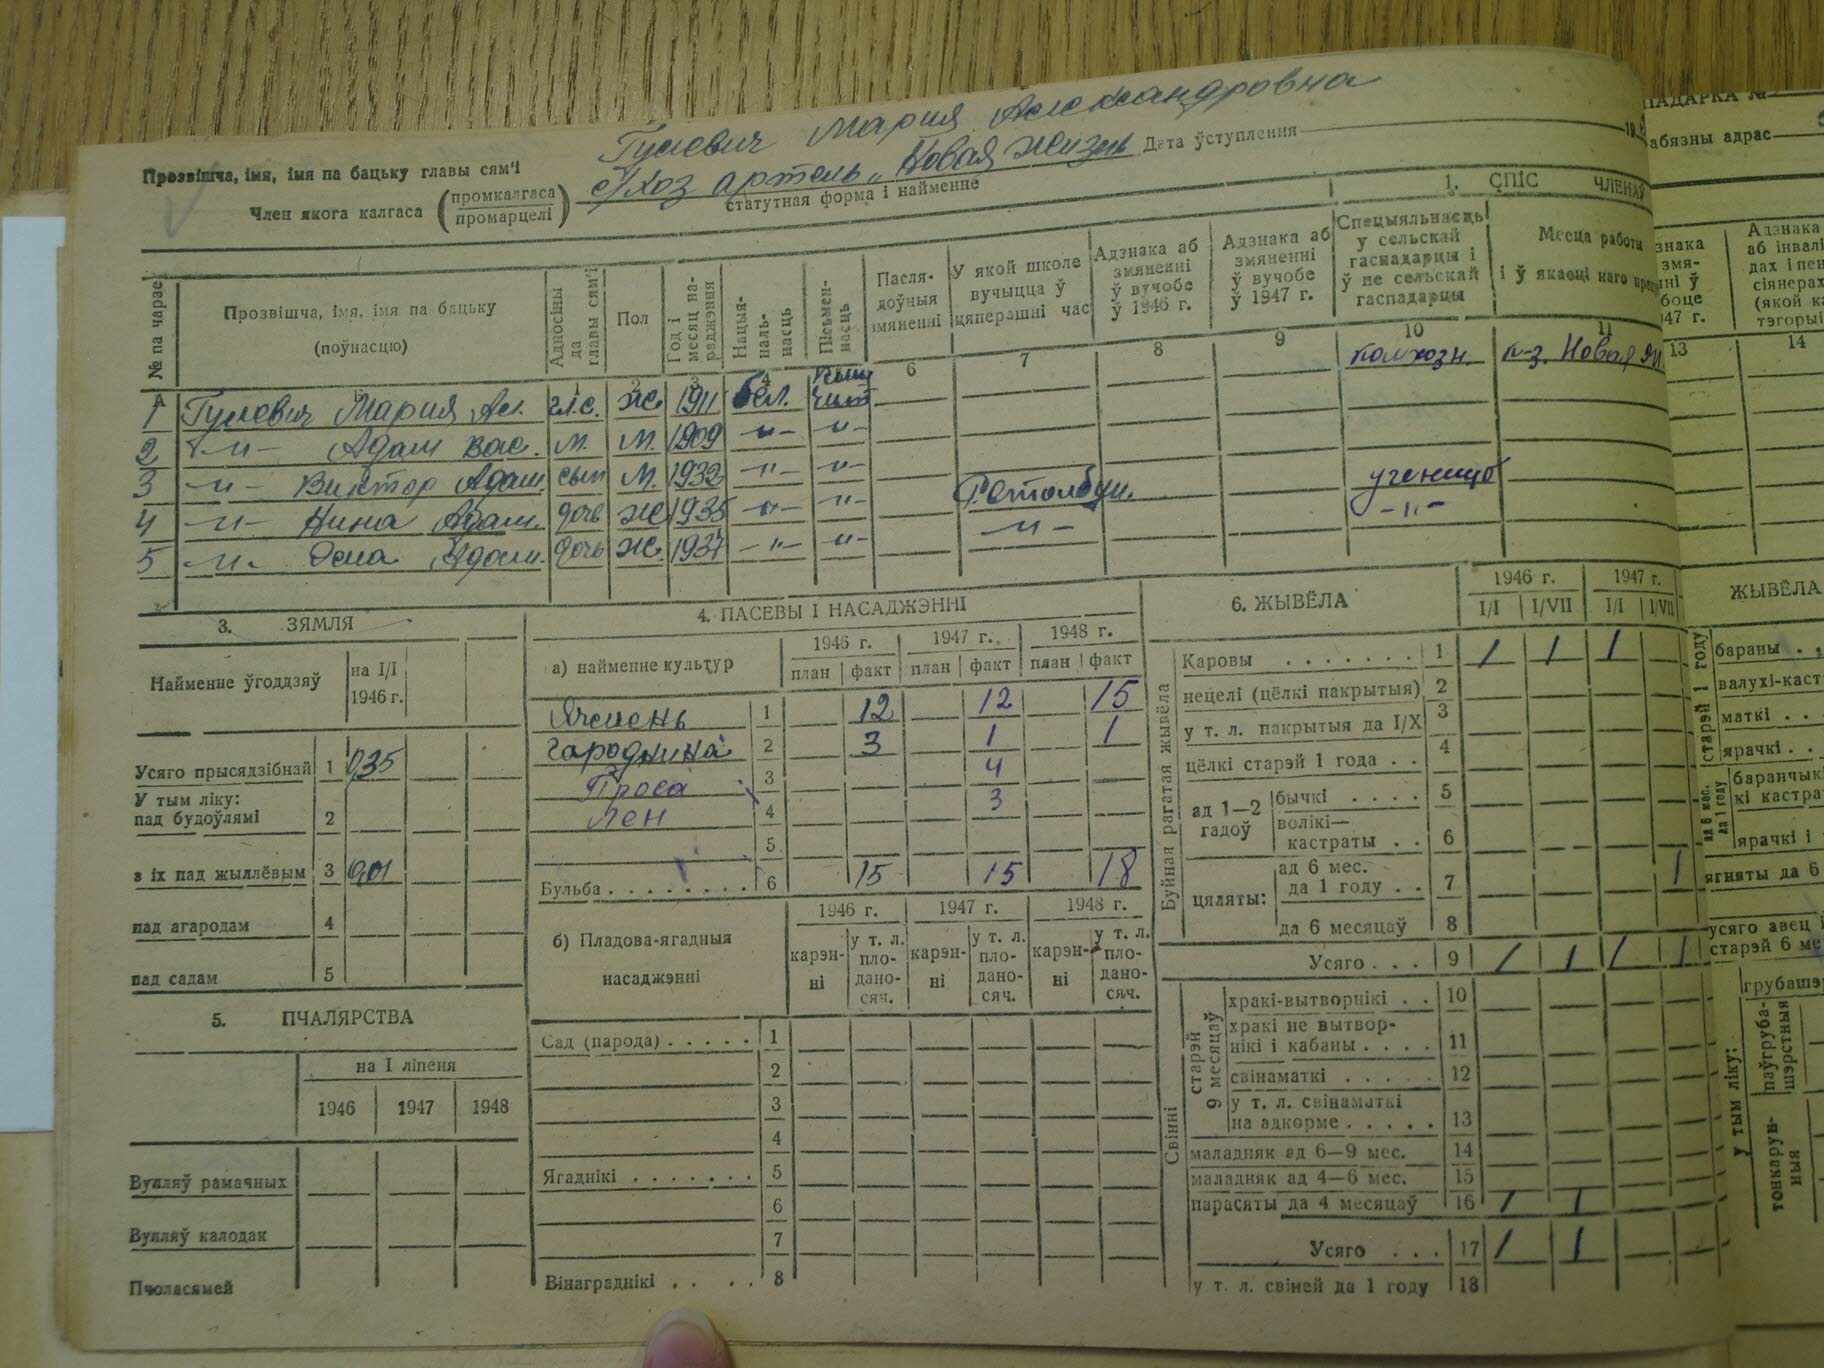 Гулевич Мария Александровна
Прозвішча, імя, імя па бацьку главы сям'і
Член якога калгаса (промкалгаса промарцелі) с/хоз артель „Новая Жизнь Дата ўступлення 19
статутная форма і найменне
1. СПІС ЧЛЕНАЎ
№ па чарзе
Прозвішча, імя, імя па бацьку (поўнасцю)
Адносіны да главы сям'і
Пол
Год і месяц нараджэння
Нацыянальнасць
Пісьменнасць
Пасля-
доўныя
змяненні
У якой школе
вучыцца ў
цяперашні час
Адзнака аб
змяненні
ў вучобе
ў 1946 г.
Адзнака аб
змяненні
ў вучобе
ў 1947 г.
Спецыяльнасць
у сельскай
гаспадарцы і
ў не сельскай
гаспадарцы
Месца работы
і ў якасці каго
1 2 3 4 6 7 8 9 10 11
1 Гулевич Мария Ал. гл.с. Ж. 1911 бел. чит колхозн. к-з. Новая
2 -"- Адам Вас. м. М. 1909 -"- -"-
3 -"- Виктор Адам. сын М. 1932 -"- -"-
4 -"- Нина Адам. дочь Ж 1935 -"- -"- ученица
5 -"- Адам. дочь Ж. 1937 -"- -"- -"- -"-
3. ЗЯМЛЯ
Найменне ўгоддзяў на I/I 1946 г.
Усяго прысядзібнай 1 0,35
У тым ліку:
пад будоўлямі 2
з іх пад жыллёвым 3 0,01
пад агародам 4
пад садам 5
5. ПЧАЛЯРСТВА
на I ліпеня
1946 1947 1948
Вулляў рамачных
Вулляў калодак
Пчоласямей
4. ПАСЕВЫ І НАСАДЖЭННІ
1946 г. 1947 г. 1948 г.
а) найменне культур план факт план факт план факт
Ячмень 1 12 12 15
гароднина 2 3 1 1
Проса 3 4
Лен 4 3
5
Бульба 6 15 15 18
1946 г. 1947 г. 1948 г.
б) Пладова-ягадныя
насаджэнні
карэн-
ні
у т. л.
пло-
дано-
сяч.
карэн-
ні
у т. л.
пло-
дано-
сяч.
карэн-
ні
у т. л.
пло-
дано-
сяч.
Сад (парода) 1
2
3
4
Ягаднікі 5
6
7
Вінаграднікі 8
6. ЖЫВЁЛА
1946 г. 1947 г.
I/I I/VII I/I I/VII
Буйная рагатая жывёла
Каровы 1 1 1 1
нецелі (цёлкі пакрытыя) 2
у т. л. пакрытыя да I/X 3
цёлкі старэй 1 года 4
ад 1—2
гадоў
бычкі 5
волікі—
кастраты 6
цяляты:
ад 6 мес.
да 1 году 7 1
да 6 месяцаў 8
Усяго 9 1 1 1 1
Свінні
старэй 9 месяцаў
хракі-вытворнікі 10
хракі не вытвор-
нікі і кабаны 11
свінаматкі 12
у т. л. свінаматкі
на адкорме 13
маладняк ад 6—9 мес. 14
маладняк ад 4—6 мес. 15
парасяты да 4 месяцаў 16 1 1
Усяго 17 1 1
у т. л. свіней да 1 году 18
ПАДАРКА №
абязны адрас
13 14
Адзнака
аб інвалі
дах і пен
сіянерах
(якой ка
тэгорыі
ЖЫВЁЛА
старэй 1 году
бараны
валухі-каст
маткі
ярачкі
ад 6 мес.
да 1 году
баранчык
кі кастра
ярачкі і
ягняты да 6
усяго авец і
старэй 6 ме
грубашэр
У тым ліку:
паўгруба-
шэрстныя
тонкарун-
ныя